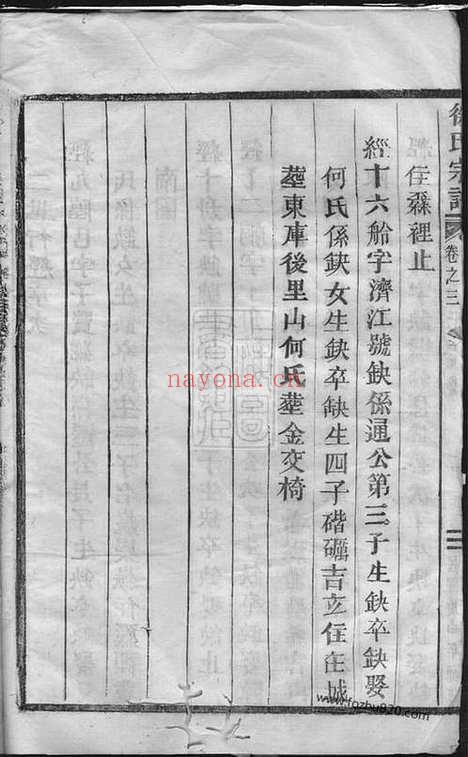 徐氏宗譜
卷之三
住森裡止
經十六船字濟江號缺係通公第三子生缺卒缺娶
何氏係缺女生缺卒缺生四子礄礪吉立住在城
塟東庫後里山何氏塟金交椅
nayona.cn
www.fozhu920.com